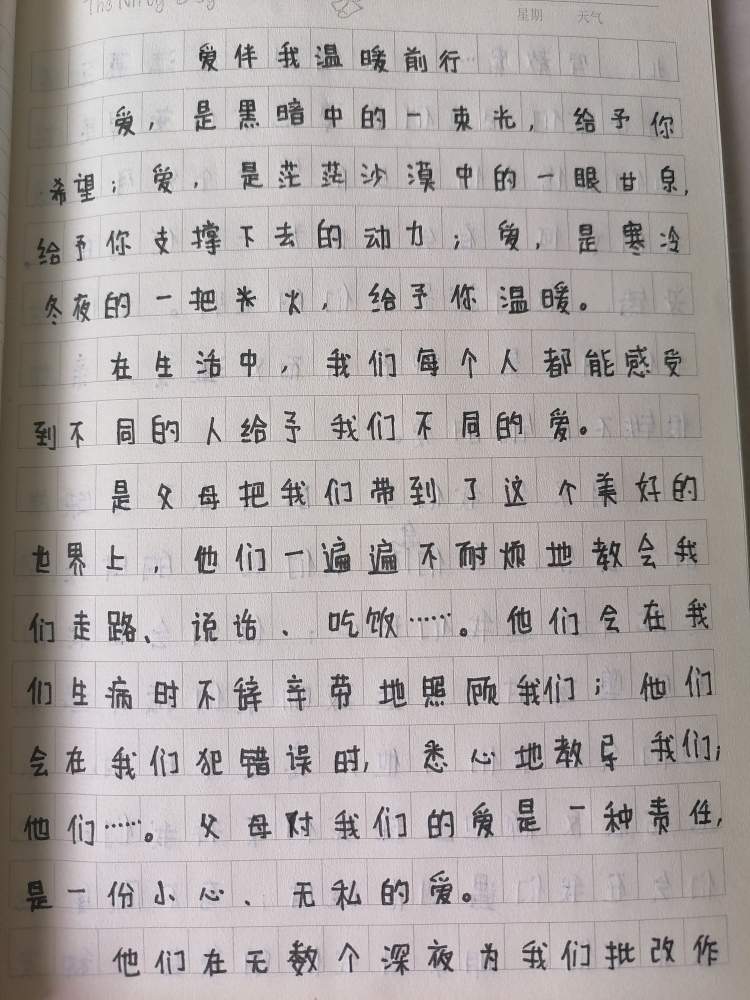 星期 天气
爱伴我温暖前行
爱，是黑暗中的一束光，给予你
希望；爱，是茫茫沙漠中的一眼甘泉，
给予你支撑下去的动力；爱，是寒冷
冬夜的一把火，给予你温暖。
在生活中，我们每个人都能感受
到不同的人给予我们不同的爱。
是父母把我们带到了这个美好的
世界上，他们一遍遍不耐烦地教会我
们走路、说话、吃饭……。他们会在我
们生病时不辞辛苦地照顾我们；他们
会在我们犯错误时，悉心地教导我们；
他们……。父母对我们的爱是一种责任，
是一份小心、无私的爱。
他们在无数个深夜为我们批改作